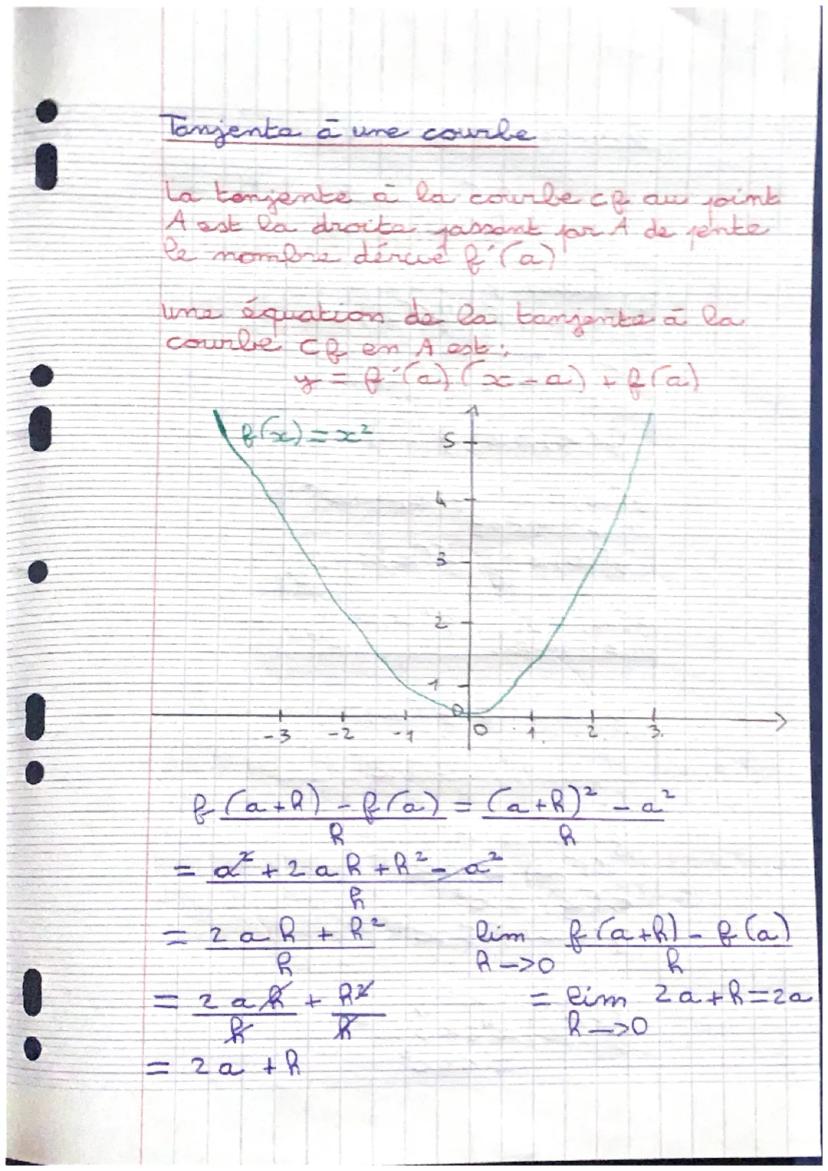 Tanjente à une courbe
la tanjente à la courbe Cf au point
A est la droite passant par A de pente
le nombre dérivé f'(a)
une équation de la tanjente à la
courbe Cf en A est :
y = f'(a) (x - a) + f(a)
f(x) = x²
5
4
3
2
1
0
-3 -2 -1 0 1 2 3
f(a+h) - f(a) / h = (a+h)² - a² / h
= a² + 2ah + h² - a² / h
= 2ah + h² / h
lim h->0 f(a+h) - f(a) / h
= 2ah / h + h² / h
= lim h->0 2a+h = 2a
= 2a + h